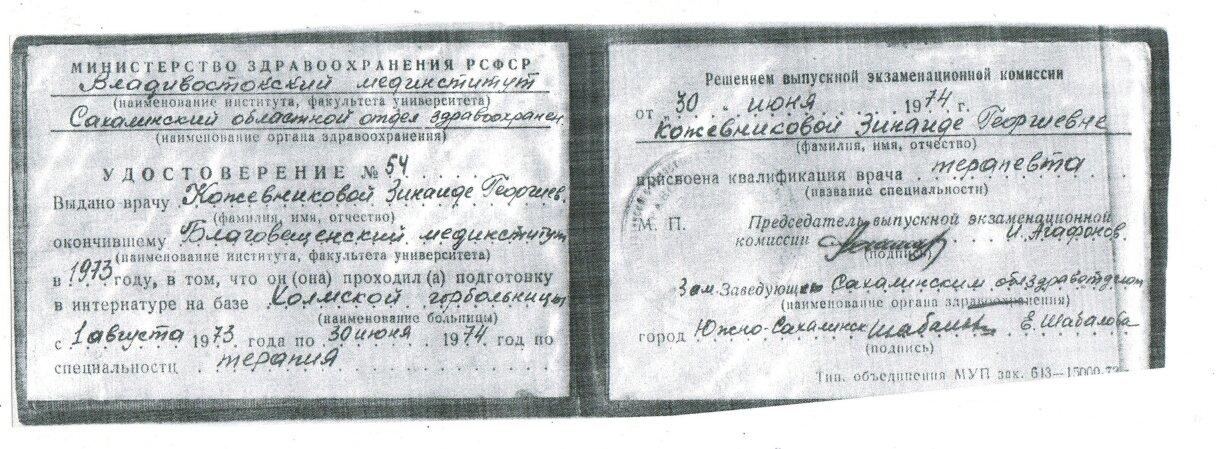 МИНИСТЕРСТВО ЗДРАВООХРАНЕНИЯ РСФСР
Владивостокский мединститут
(наименование института, факультета университета)
Сахалинский областной отдел здравоохранен.
(наименование органа здравоохранения)
УДОСТОВЕРЕНИЕ № 54
Выдано врачу Кожевниковой Зинаиде Георгиев.
(фамилия, имя, отчество)
окончившему Благовещенский мединститут
(наименование института, факультета университета)
в 1973 году, в том, что он (она) проходил (а) подготовку
в интернатуре на базе Холмской горбольницы
(наименование больницы)
с 1 августа 1973 года по 30 июня 1974 год по
специальности терапия
Решением выпускной экзаменационной комиссии
от „30 „ июня 1974 г.
Кожевниковой Зинаиде Георгиевне
(фамилия, имя, отчество)
присвоена квалификация врача терапевта
(название специальности)
М. П. Председатель выпускной экзаменационной
комиссии И. Агафонов.
(подпись)
Зам. Заведующ Сахалинским облздравотделом
(наименование органа здравоохранения)
город Южно-Сахалинск Е. Шабалова
(подпись)
Тип. объединения МУП зак. 613—15000-73